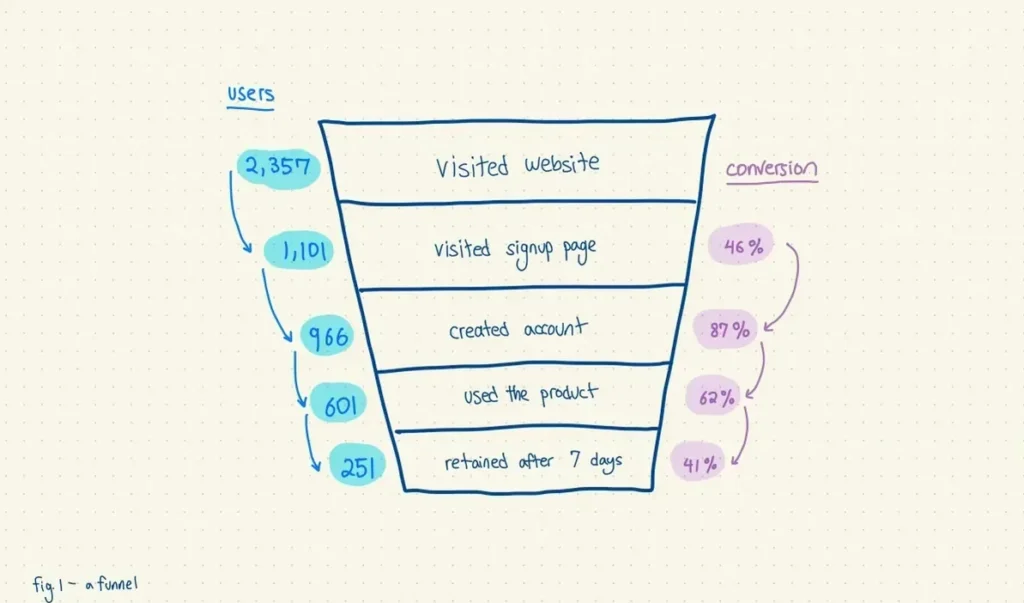 users
2,357
Visited website
conversion
1,101
visited signup page
46%
966
created account
87%
601
used the product
62%
251
retained after 7 days
41%
fig.1 - a funnel